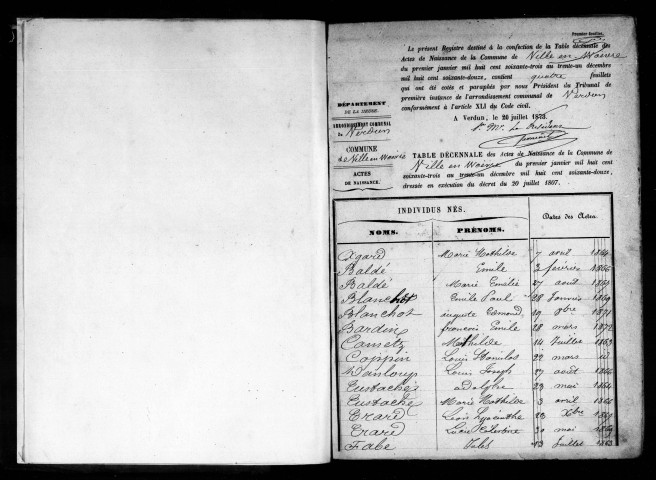 Premier feuillet.
Le présent Registre destiné à la confection de la Table décennale des
Actes de Naissance de la Commune de Ville en Woëvre
du premier janvier mil huit cent soixante-trois au trente-un décembre
mil huit cent soixante-douze, contient quatre feuillets
qui ont été cotés et paraphés par nous Président du Tribunal de
première instance de l'arrondissement communal de Verdun
conformément à l'article XLI du Code civil.
A Verdun, le 20 juillet 1873.
Le Président
DÉPARTEMENT
DE LA MEUSE.
ARRONDISSEMENT COMMUNAL
de Verdun
COMMUNE
de Ville en Woëvre
ACTES
DE NAISSANCE.
TABLE DÉCENNALE des Actes de Naissance de la Commune de
Ville en Woëvre du premier janvier mil huit cent
soixante-trois au trente-un décembre mil huit cent soixante-douze,
dressée en exécution du décret du 20 juillet 1807.
INDIVIDUS NÉS.
Dates des Actes.
NOMS. PRÉNOMS.
Agard Marie Mathilde 7 avril 1864
Baldé Emile 3 février 1866
Baldé Marie Emélie 27 août
Blanchot Emile Paul 28 Janvier 1869
Blanchot auguste Edmond 19 8bre 1871
Bardin françois Emile 28 mars 1872
Mathilde 14 Juillet 1863
Coppin Louis Stanislas 22 mars id
Louis Joseph 27 août 1866
Eustache adolphe 23 mai 1864
Eustache Marie Mathilde 3 avril 1866
Erard Léon Hyacinthe 23 Xbre
Erard 30 mai 1869
Fabé Jules 13 Juillet 1863